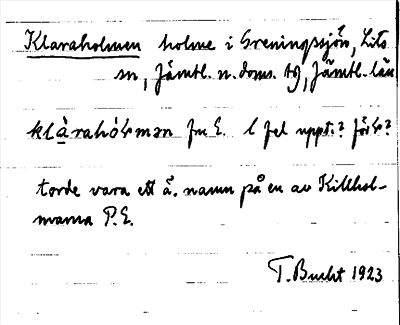 Klaraholmen holme i Greningssjön, Lits
sn, Jämtl. n. doms. tg, Jämtl. län
klàrahóḷmǝn fm E. l fel uppt.? för ḷ?
torde vara ett å. namn på en av Killhol-
marna P.E.
T. Bucht 1923